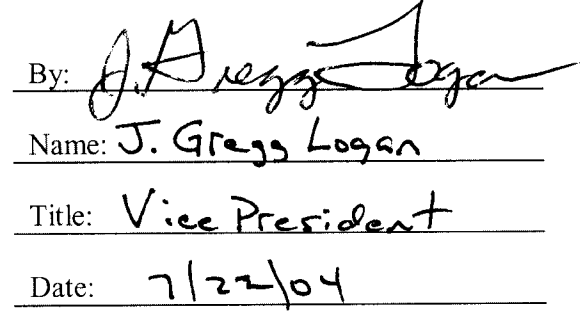 By: J. Gregg Logan
Name: J. Gregg Logan
Title: Vice President
Date: 7/22/04